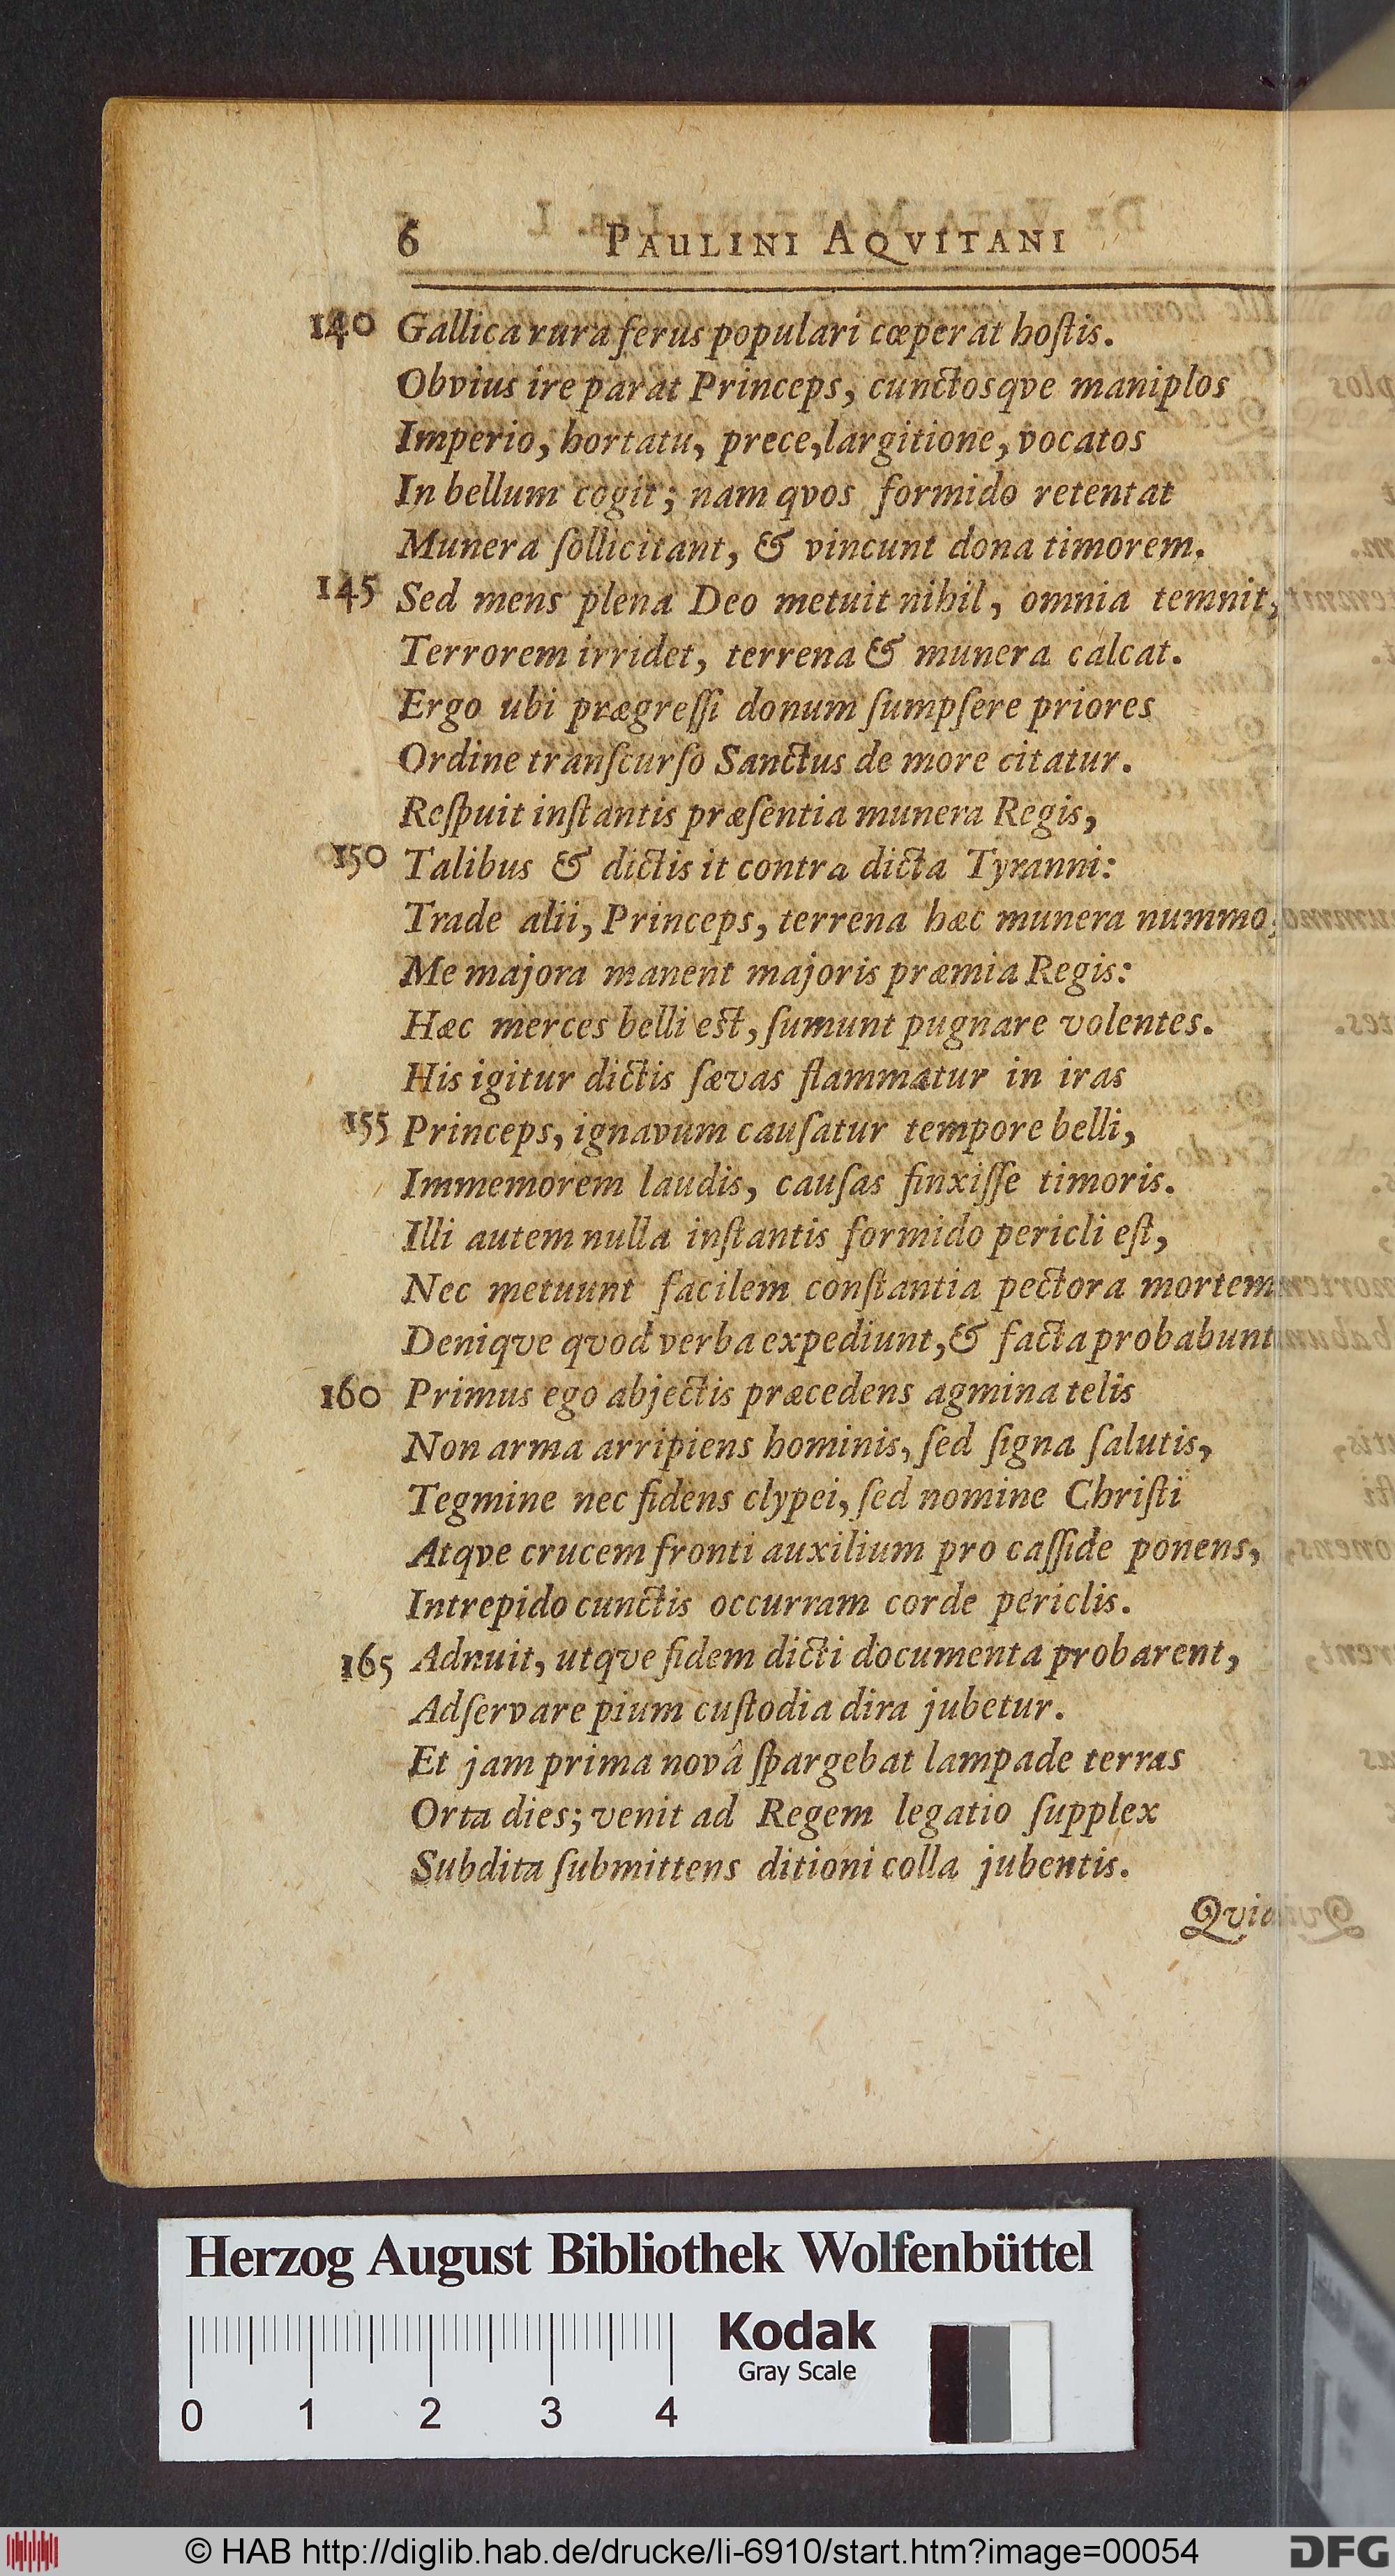 6 PAULINI AQVITANI
140 Gallica rura ferus populari cœperat hoſtis.
Obvius ire parat Princeps, cunctosqve maniplos
Imperio, hortatu, prece, largitione, vocatos
In bellum cogit; nam qvos formido retentat
Munera ſollicitant, & vincunt dona timorem.
145 Sed mens plena Deo metuit nihil, omnia temnit,
Terrorem irridet, terrena & munera calcat.
Ergo ubi prægreſſi donum ſumpſere priores
Ordine tranſcurſo Sanctus de more citatur.
Reſpuit inſtantis præſentia munera Regis,
150 Talibus & dictis it contra dicta Tyranni:
Trade alii, Princeps, terrena hæc munera nummo,
Me majora manent majoris præmia Regis:
Hæc merces belli est, ſumunt pugnare volentes.
His igitur dictis ſævas flammatur in iras
155 Princeps, ignavum cauſatur tempore belli,
Immemorem laudis, cauſas finxiſſe timoris.
Illi autem nulla inſtantis formido pericli eſt,
Nec metuunt facilem conſtantia pectora mortem
Deniqve qvod verba expediunt, & facta probabunt
160 Primus ego abjectis præcedens agmina telis
Non arma arripiens hominis, ſed ſigna ſalutis,
Tegmine nec fidens clypei, ſed nomine Chriſti
Atqve crucem fronti auxilium pro caſſide ponens,
Intrepido cunctis occurram corde periclis.
165 Adnuit, utqve fidem dicti documenta probarent,
Adſervare pium cuſtodia dira jubetur.
Et jam prima novâ ſpargebat lampade terras
Orta dies; venit ad Regem legatio ſupplex
Subdita ſubmittens ditioni colla jubentis.
Herzog August Bibliothek Wolfenbüttel
Kodak
Gray Scale
0 1 2 3 4
© HAB http://diglib.hab.de/drucke/li-6910/start.htm?image=00054
DFG